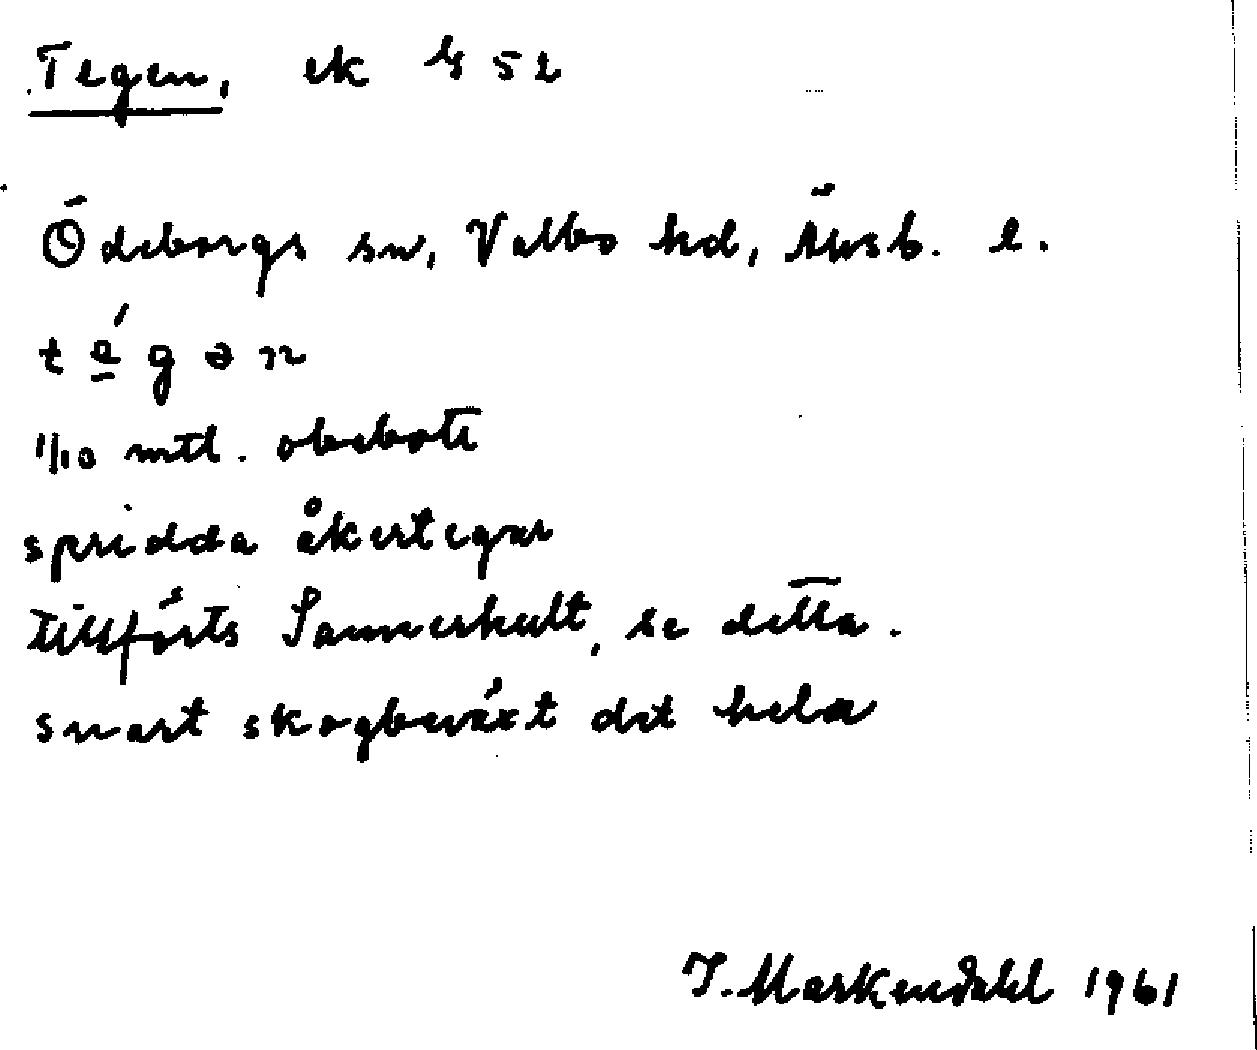 Tegen, ek 4 52
Ödeborgs sn, Valbo hd, Älvsb. l.
t é̲ g ə n
1/10 mtl. obebott
spridda åkertegar
tillförts Sannerhult, se detta.
snart skogbeväxt det hela
J. Markendahl 1961